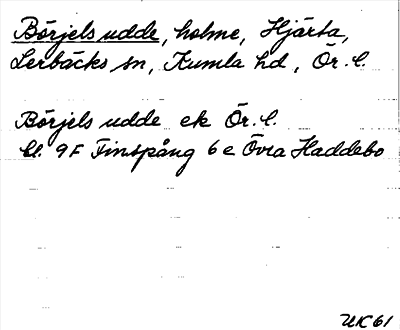 Börjels udde, holme, Hjärta,
Lerbäcks sn, Kumla hd, Ör. l.
Börjels udde ek Ör. l.
bl. 9F Finspång 6 e Övra Haddebo
UK 61